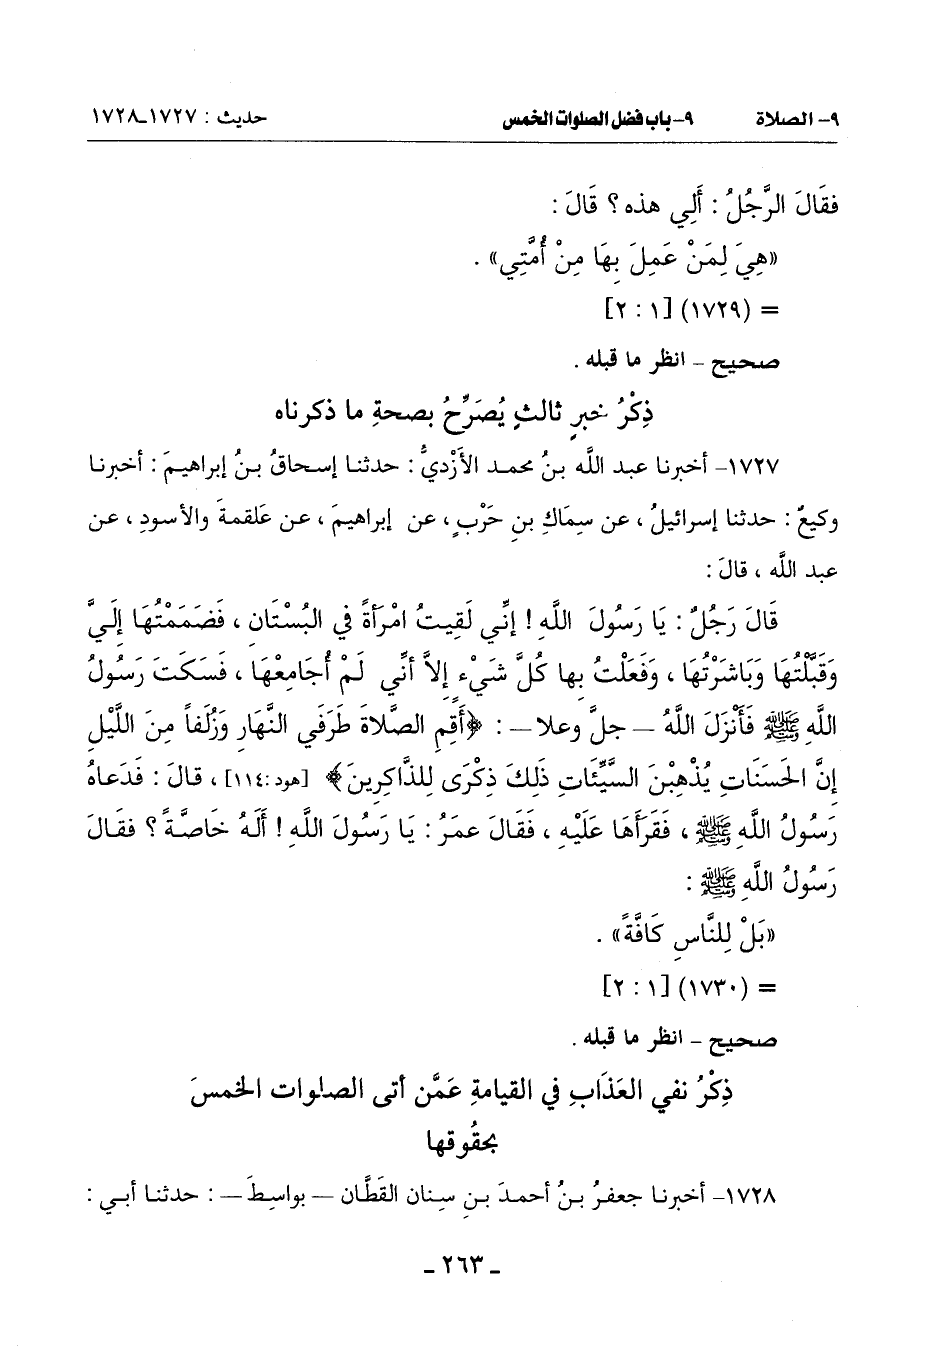 ٩- الصلاة ٩- باب فضل الصلوات الخمس حديث : ١٧٢٧ـ١٧٢٨
فقَالَ الرَّجُلُ : أَلِي هذه ؟ قَالَ :
«هِيَ لِمَنْ عَمِلَ بِهَا مِنْ أُمَّتِي» .
= (١٧٢٩) [١ : ٢]
صحيح – انظر ما قبله .
ذِكْرُ خبرٍ ثالثٍ يُصَرِّحُ بصحةِ ما ذكرناه
١٧٢٧- أخبرنا عبد اللَّه بنُ محمد الأَزْديُّ : حدثنا إسحاقُ بنُ إبراهيمَ : أخبرنا
وكيعٌ : حدثنا إسرائيلُ ، عن سِمَاكِ بنِ حَرْبٍ ، عن إبراهيمَ ، عن عَلقمةَ والأسودِ ، عن
عبد اللَّه ، قالَ :
قَالَ رَجُلٌ : يَا رَسُولَ اللَّهِ ! إنِّي لَقِيتُ امْرَأةً فِي البُسْتَانِ ، فَضَمَمْتُهَا إلَيَّ
وَقَبَّلْتُهَا وَبَاشَرْتُهَا ، وَفَعَلْتُ بِها كُلَّ شَيْءٍ إلاَّ أنِّي لَمْ أُجَامِعْهَا ، فَسَكَتَ رَسُولُ
اللَّهِ ﷺ فَأَنْزَلَ اللَّهُ – جلَّ وعلا – : ﴿أَقِمِ الصَّلاةَ طَرَفَي النَّهَارِ وَزُلَفاً مِنَ اللَّيْلِ
إنَّ الحَسَنَاتِ يُذْهِبْنَ السَّيِّئَاتِ ذَلِكَ ذِكْرَى لِلذَّاكِرِينَ﴾ [هود:١١٤] ، قالَ : فَدَعاهُ
رَسُولُ اللَّهِ ﷺ ، فَقَرَأهَا عَلَيْهِ ، فَقَالَ عمَرُ : يَا رَسُولَ اللَّهِ ! أَلَهُ خَاصَّةً ؟ فقَالَ
رَسُولُ اللَّهِ ﷺ :
«بَلْ لِلنَّاسِ كَافَّةً» .
= (١٧٣٠) [١ : ٢]
صحيح – انظر ما قبله .
ذِكْرُ نفي العَذَابِ فِي القيامةِ عَمَّن أتى الصلوات الخمسَ
بحقُوقها
١٧٢٨- أخبرنا جعفرُ بنُ أحمدَ بنِ سِنان القَطَّان – بواسِطَ – : حدثنا أبي :
ـ ٢٦٣ ـ